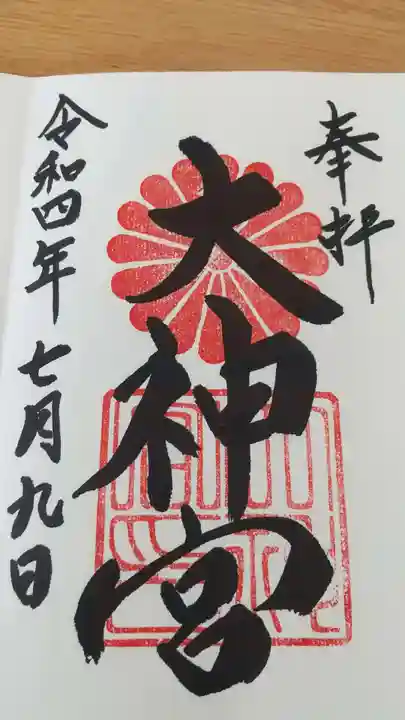 奉拝
大神宮
令和四年七月九日